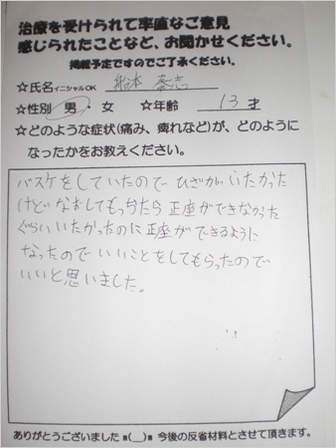 治療を受けられて率直なご意見
感じられたことなど、お聞かせください。
掲載予定ですのでご了承ください。
☆氏名イニシャルOK 松本
☆性別 男・女 ☆年齢 13才
☆どのような症状(痛み、痺れなど)が、どのように
なったかをお教えください。
バスケをしていたので ひざがいたかった
けどなおしてもらったら 正座ができなかった
ぐらいいたかったのに正座ができるように
なったので いいことをしてもらったので
いいと思いました。
ありがとうございました m(__)m 今後の反省材料とさせて頂きます。